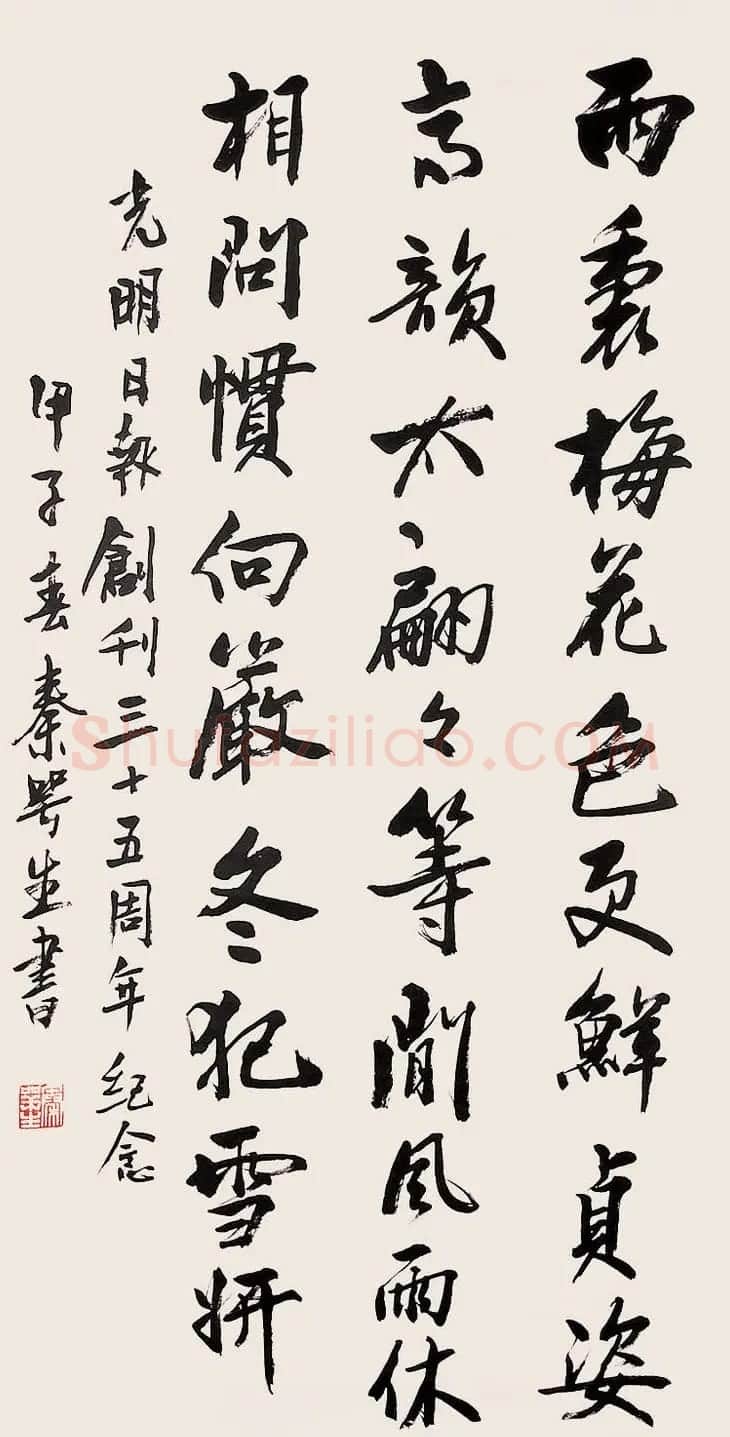 雨裏梅花色更鮮貞姿
高韻太翩々等閒風雨休
相問慣向嚴冬犯雪妍
光明日報創刊三十五周年紀念
甲子春秦咢生書
秦咢生
Shufaziliao.COM